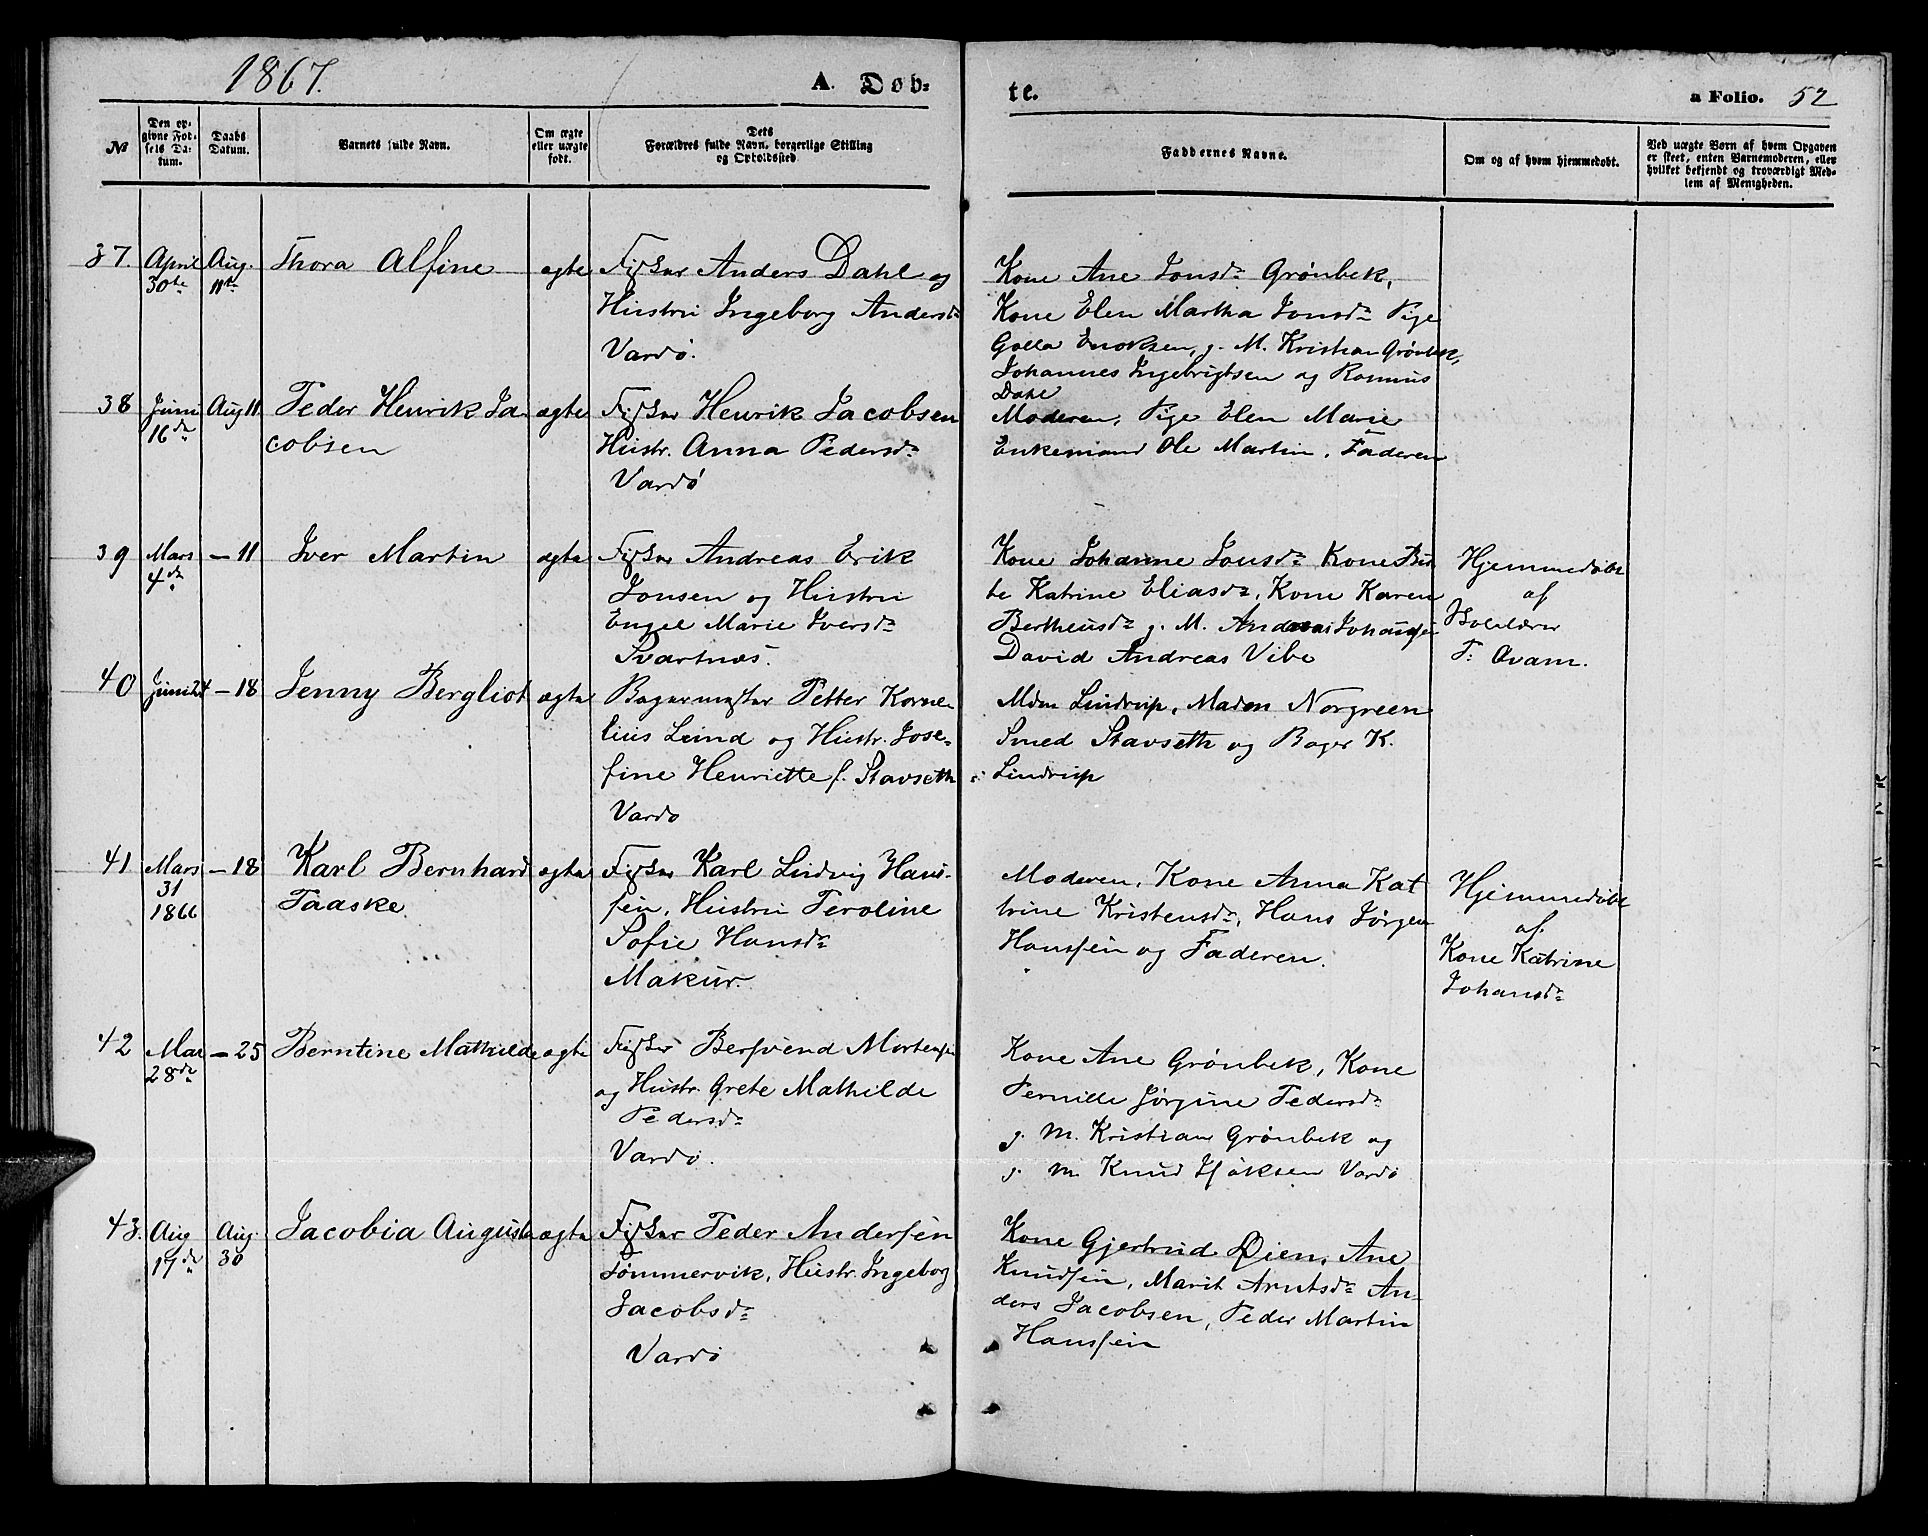 1867.
A. Døb-
te.
a Folio. 52
№
Den opgivne Fødsels Datum.
Daabs Datum.
Barnets fulde Navn.
Om ægte eller uægte født.
Dets Forældres fulde Navn, borgerlige Stilling og Opholdssted.
Faddernes Navne.
Om og af hvem hjemmedøbt.
Ved uægte Børn af hvem Opgaven er skeet, enten Barnemoderen, eller hvilket bekjendt og troværdigt Medlem af Menigheden.
37. April 30te Aug. 11te Thora Alfine ægte
Fisker Anders Dahl og
Hustru Ingeborg Andersdr
Vardø.
Kone Ane Jonsdr Grønbek,
Kone Elen Martha Jonsdr Pige
Golla Enoksen, g. M. Kristian Grønbek,
Johannes Ingebrigtsen og Rasmus
Dahl
38 Juni 16de Aug 11 Peder Henrik Ja-
cobsen
ægte
Fisker Henrik Jacobsen
Hustr. Anna Pedersdr
Vardø
Moderen, Pige Elen Marie
Enkemand Ole Martin, Faderen
39 Mars 4de — 11 Iver Martin ægte
Fisker Andreas Erik
Jonsen og Hustru
Engel Marie Iversdr
Svartnæs.
Kone Johanne Jonsdr Kone Bir
te Katrine Eliasdr, Kone Karen
Bertheusdr g. M. Andreas Johansen
David Andreas Vibe
Hjemmedøbt
af
F. Qvam.
40 Juni 24 — 18 Jenny Bergliot ægte
Bagermester Petter Korne-
lius Lund og Hustr. Jose-
fine Henriette f. Stavseth
Vardø
Mdm Lindrup, Madm Norgreen
Smed Stavseth og Bager K.
Lindrup
41 Mars 31 1866 — 18 Karl Bernhard
Taaske
ægte
Fisker Karl Ludvig Han-
sen, Hustru Peroline
Sofie Hansdr
Makur.
Moderen, Kone Anna Kat
trine Kristensdr, Hans Jørgen
Hanssen og Faderen.
Hjemmedøbt
af
Kone Katrine
Johansdr
42 Mai 28de — 25 Berntine Mathilde ægte
Fisker Bersvend Mortensen
og Hustr. Grete Mathilde
Pedersdr
Vardø.
Kone Ane Grønbek, Kone
Pernille Jørgine Pedersdr
g. M. Kristian Grønbek og
g. M Knud Isaksen Vardø
43. Aug 17de Aug. 30 Jacobia Augusta ægte
Fisker Peder Anderssen
Tømmervik, Hustr. Ingeborg
Jacobsdr
Vardø
Kone Gjertrud Øien, Ane
Knudsen, Marit Arntsdr An-
ders Jacobsen, Peder Martin
Hanssen